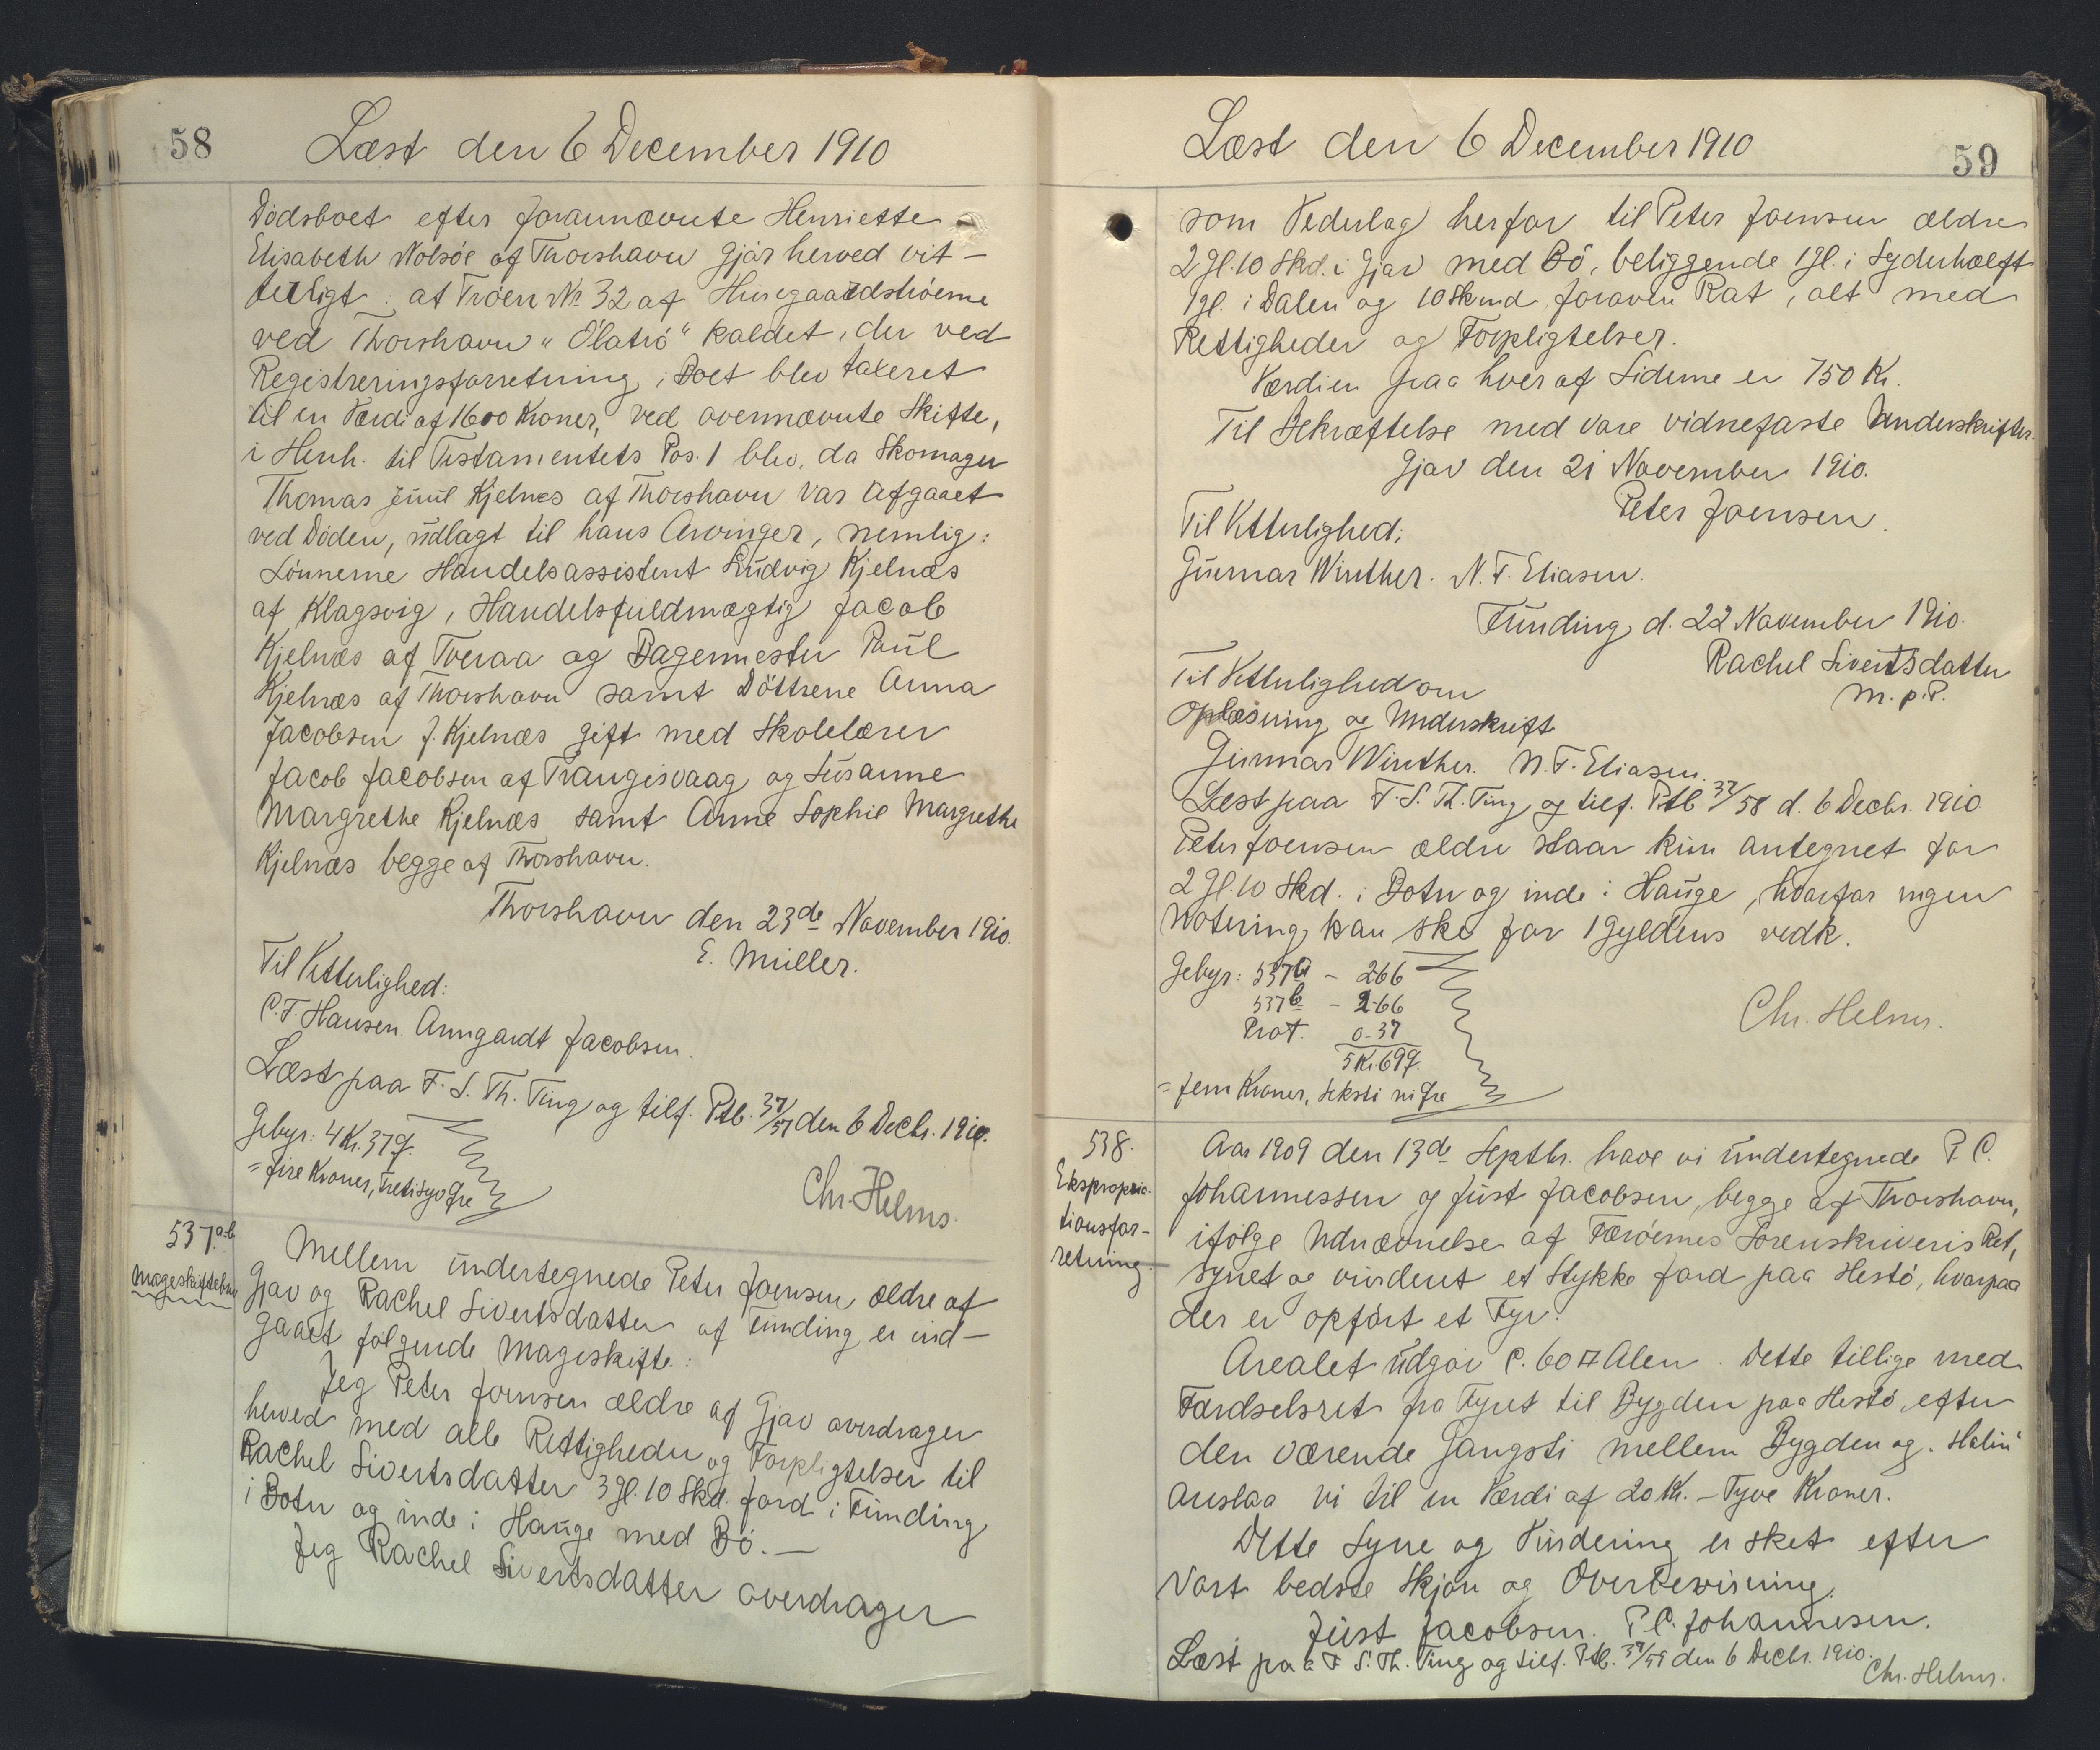 58
Læst den 6 December 1910
Dödsboet efter forannævnte Henriette
Elisabeth Nolsöe af Thorshavn gjör herved vit-
terligt: at Tröen No 32 af Husegaardströerne
ved Thorshavn "Ólatrö" kaldet, der ved
Registreringsforretning i Boet blev taxeret
til en Værdi af 1600 Kroner, ved ovennævnte Skifte,
i Henh. til Testamentets Pos. 1 blev, da Skomager
Thomas Juul Kjelnes af Thorshavn var afgaaet
ved Döden, udlagt til hans Arvinger, nemlig:
Sönnerne Handelsassistent Ludvig Kjelnæs
af Klagsvig, Handelsfuldmægtig Jacob
Kjelnæs af Tveraa og Bagermester Paul
Kjelnæs af Thorshavn samt Döttrene Anna
Jacobsen f. Kjelnæs gift med Skolelærer
Jacob Jacobsen af Trangisvaag og Susanne
Margrethe Kjelnæs samt Anne Sophie Margrethe
Kjelnæs begge af Thorshavn.
Thorshavn den 23de November 1910.
E. Müller.
Til Vitterlighed:
C.F. Hansen. Anngardt Jacobsen.
Læst paa F. S. Th. Ting og tilf. Ptb. 37/57 den 6 Decbr. 1910.
Gebyr: 4 Kr. 37 Ø.
= fire Kroner, tretisyv Øre
Chr. Helms.
537.a-b
Mageskiftebrev
Mellem undertegnede Peter Joensen ældre af
Gjov og Rachel Sivertsdatter af Funding er ind-
gaaet følgende Mageskifte:
Jeg Peter Joensen ældre af Gjov overdrager
herved med alle Rettigheder og Forpligtelser til
Rachel Sivertsdatter 3 Gl. 10 Skd. Jord i Funding
i Botn og inde i Hauge med Bö. —
Jeg Rachel Sivertsdatter overdrager
Læst den 6 December 1910
59
som Vederlag herfor til Peter Joensen ældre
2 Gl. 10 Skd. i Gjov med Bö, beliggende 1 Gl. i Syderhælft
1 Gl. i Dalen og 10 Skind foroven Rat, alt med
Rettigheder og Forpligtelser.
Værdien paa hver af Siderne er 750 Kr.
Til Bekræftelse med vore vidnefaste Underskrifter.
Gjov den 21 November 1910.
Peter Joensen.
Til Vitterlighed:
Gunnar Winther. N. F. Eliasen.
Funding, d. 22 November 1910.
Rachel Sivertsdatter
m. p. P.
Til Vitterlighed om
Oplæsning og Underskrift
Gunnar Winther. N. F. Eliasen.
Læst paa F. S. Th. Ting og tilf. Ptb. 37/58 d. 6 Decbr. 1910
Peter Joensen ældre staar kun antegnet for
2 Gl. 10 Skd. i Botn og inde i Hauge, hvorfor ingen
Notering kan ske for 1 Gyldens vedk.
Gebyr: 537a - 2 66
537b - 2 66
Prot. 0-37
5 Kr. 69 Ø.
= fem Kroner, seksti ni Øre
Chr. Helms.
538.
Ekspropria-
tionsfor-
retning.
Aar 1909 den 13de Septbr. have vi undertegnede P. C.
Johannessen og Just Jacobsen, begge af Thorshavn,
ifölge Udnævnelse af Færöernes Sorenskriveris Ret,
synet og vurderet et Stykke Jord paa Hestö, hvorpaa
der er opfört et Fyr.
Arealet udgör c. 60 □ Alen. Dette tillige med
Færdselsret fra Fyret til Bygden paa Hestö, efter
den værende Gangsti mellem Bygden og "Halin"
anslaa vi til en Værdi af 20 Kr. - Tyve Kroner.
Dette Syne og Vurdering er sket efter
vort bedste Skjön og Overbevisning.
Just Jacobsen. P. C. Johannesen.
Læst paa F. S. Th. Ting og tilf. Ptb. 37/59 den 6 Decbr. 1910.
Chr. Helms.